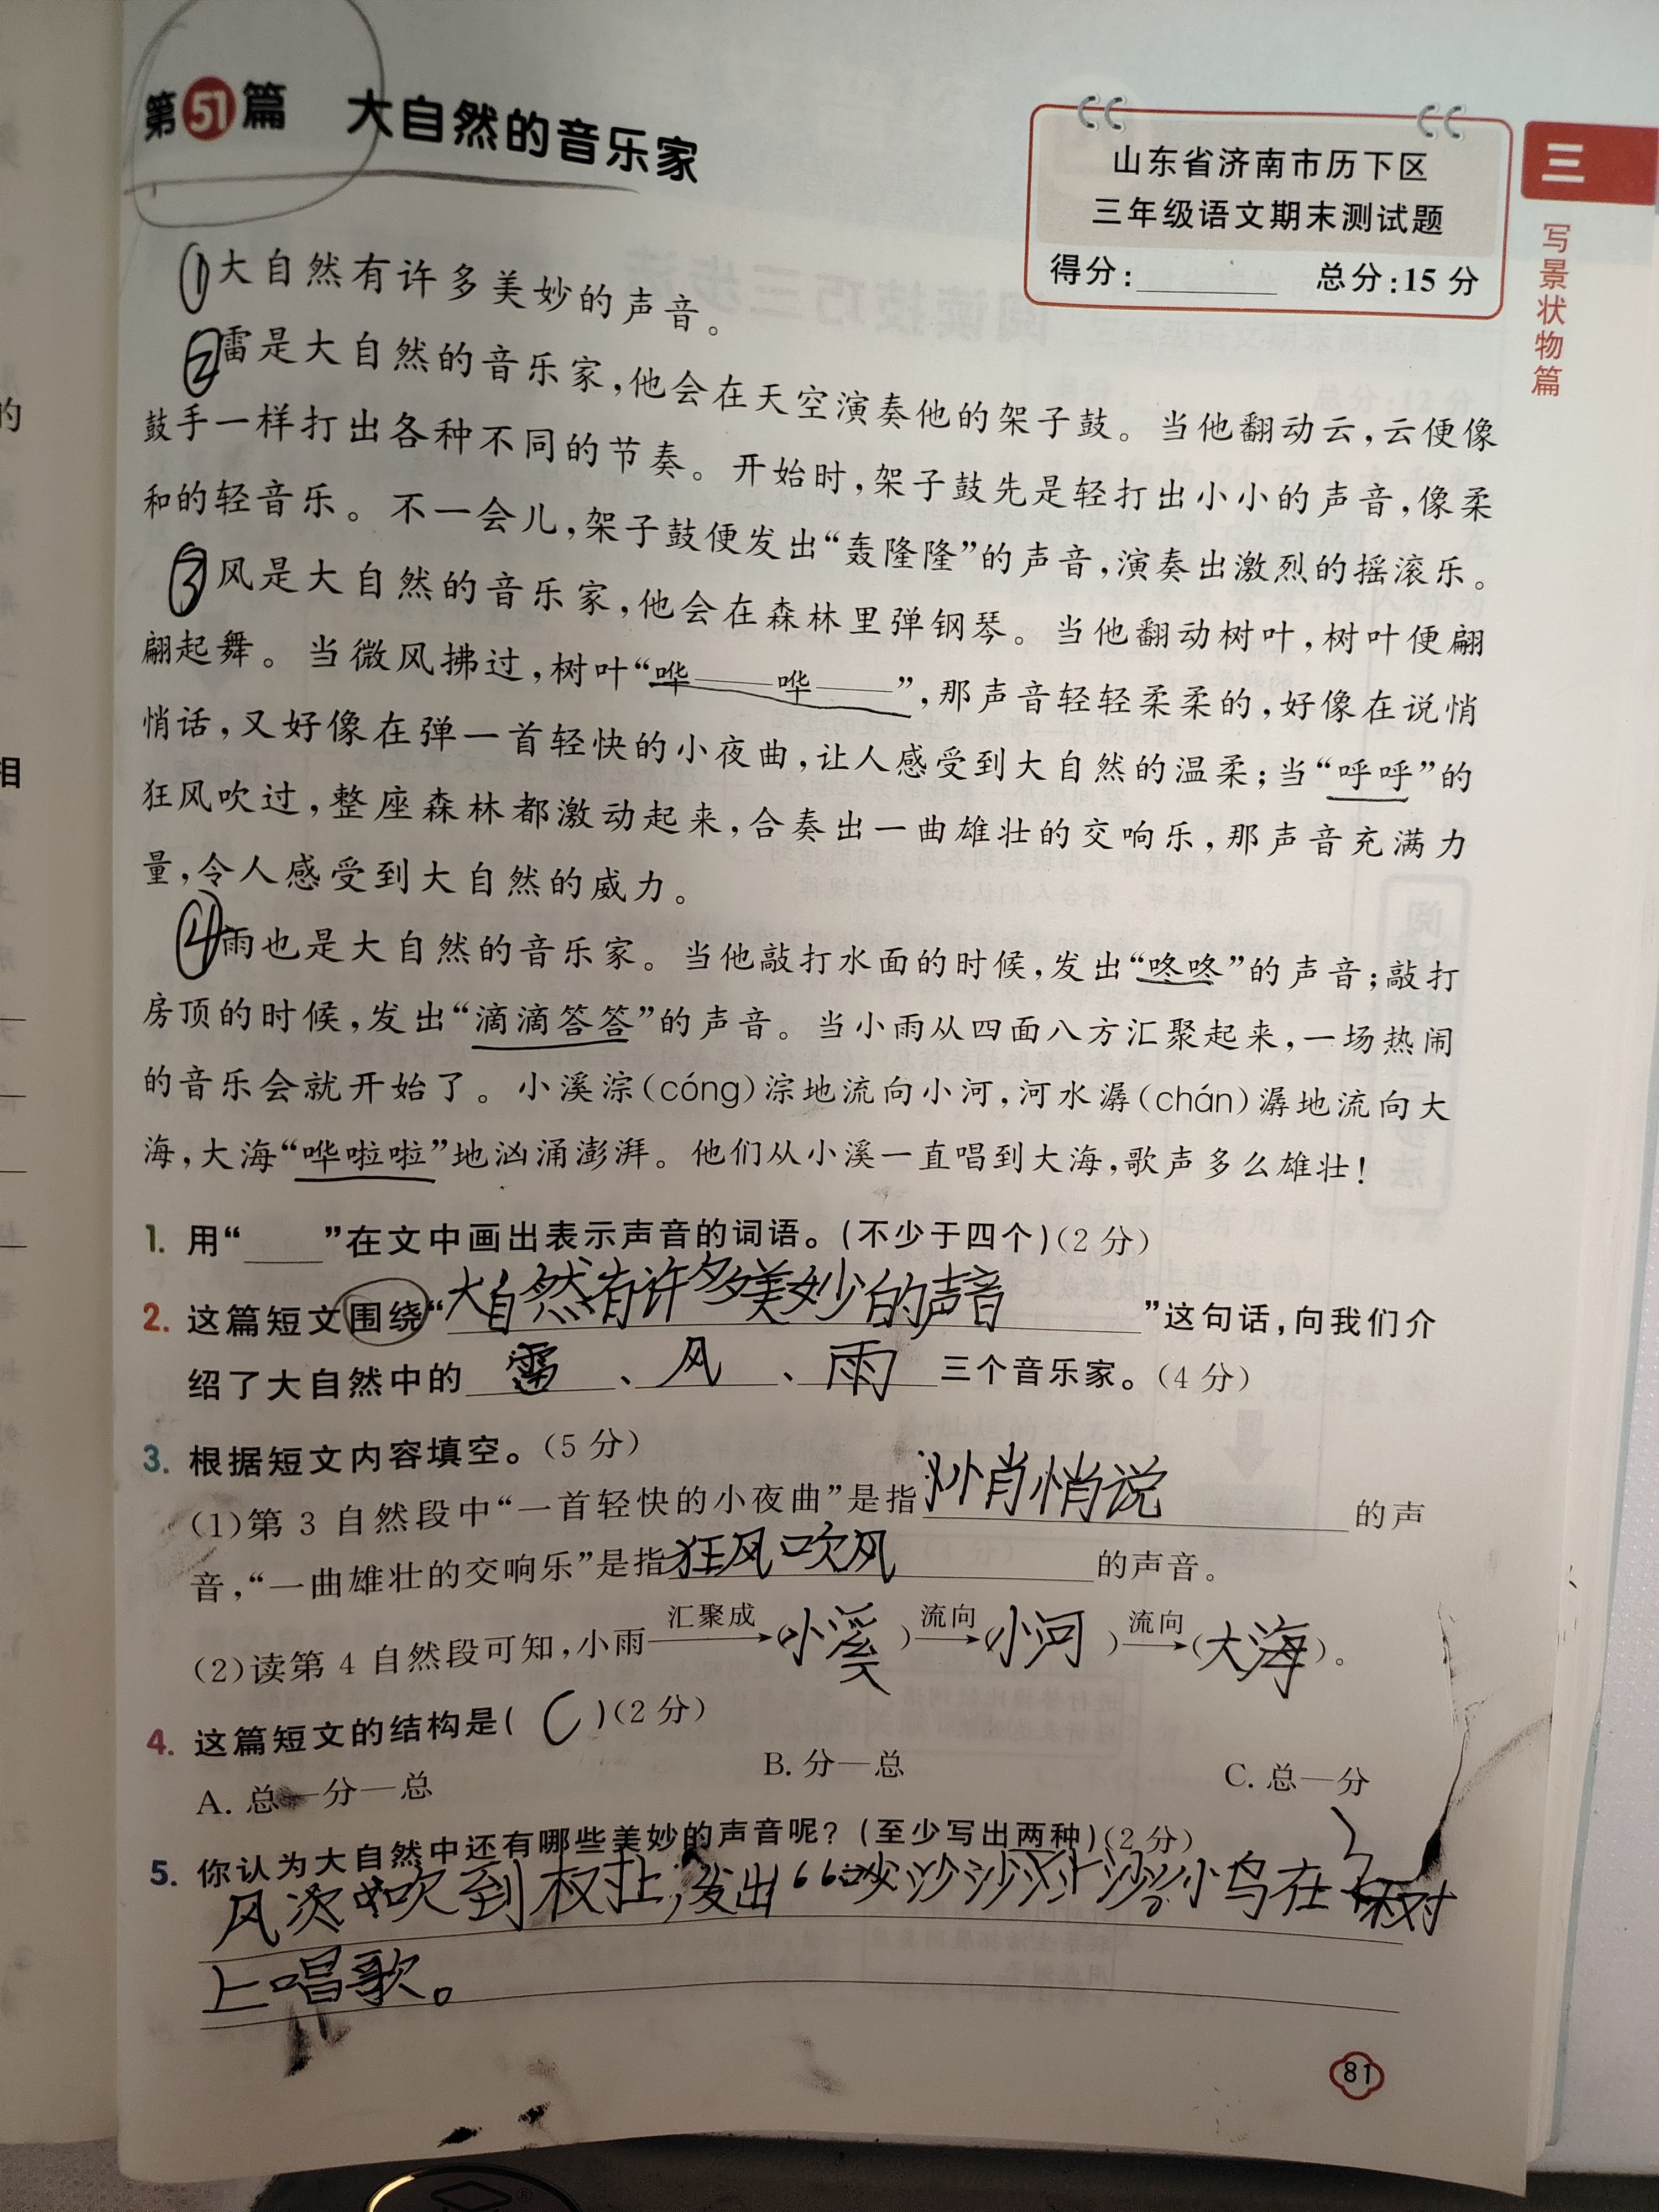 第51篇 大自然的音乐家
山东省济南市历下区
三年级语文期末测试题
得分:________ 总分:15分
三
写景状物篇
①大自然有许多美妙的声音。
②雷是大自然的音乐家,他会在天空演奏他的架子鼓。当他翻动云,云便像
鼓手一样打出各种不同的节奏。开始时,架子鼓先是轻打出小小的声音,像柔
和的轻音乐。不一会儿,架子鼓便发出“轰隆隆”的声音,演奏出激烈的摇滚乐。
③风是大自然的音乐家,他会在森林里弹钢琴。当他翻动树叶,树叶便翩
翩起舞。当微风拂过,树叶“哗——哗——”,那声音轻轻柔柔的,好像在说悄
悄话,又好像在弹一首轻快的小夜曲,让人感受到大自然的温柔;当“呼呼”的
狂风吹过,整座森林都激动起来,合奏出一曲雄壮的交响乐,那声音充满力
量,令人感受到大自然的威力。
④雨也是大自然的音乐家。当他敲打水面的时候,发出“咚咚”的声音;敲打
房顶的时候,发出“滴滴答答”的声音。当小雨从四面八方汇聚起来,一场热闹
的音乐会就开始了。小溪淙(cóng)淙地流向小河,河水潺(chán)潺地流向大
海,大海“哗啦啦”地汹涌澎湃。他们从小溪一直唱到大海,歌声多么雄壮!
1. 用“____”在文中画出表示声音的词语。(不少于四个)(2分)
2. 这篇短文围绕“大自然有许多美妙的声音”这句话,向我们介
绍了大自然中的 雷 、 风 、 雨 三个音乐家。(4分)
3. 根据短文内容填空。(5分)
(1)第3自然段中“一首轻快的小夜曲”是指 悄悄说 的声
音,“一曲雄壮的交响乐”是指 狂风吹风 的声音。
(2)读第4自然段可知,小雨 汇聚成→(小溪) 流向→(小河) 流向→(大海)。
4. 这篇短文的结构是( C )(2分)
A. 总—分—总 B. 分—总 C. 总—分
5. 你认为大自然中还有哪些美妙的声音呢?(至少写出两种)(2分)
风 吹到 发出“沙沙 沙 小鸟在 树
上唱歌。
81